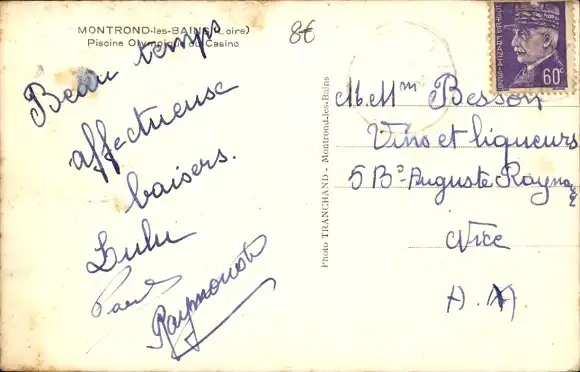 MONTROND-les-BAINS (Loire)
Piscine Olympique du Casino
8€
Beau temps
affectueuse
baisers.
Lulu
Paul
Raymonde
Photo TRANCHAND - Montrond-les-Bains
M. Mme Besson
Vins et liqueurs
5 Bd Auguste Raynaud
Nice
A. M
60c